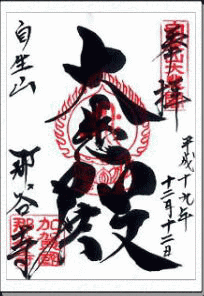 奉拝
平成十九年
十二月十二日
大悲殿
自生山
那谷寺
加賀國
那谷寺